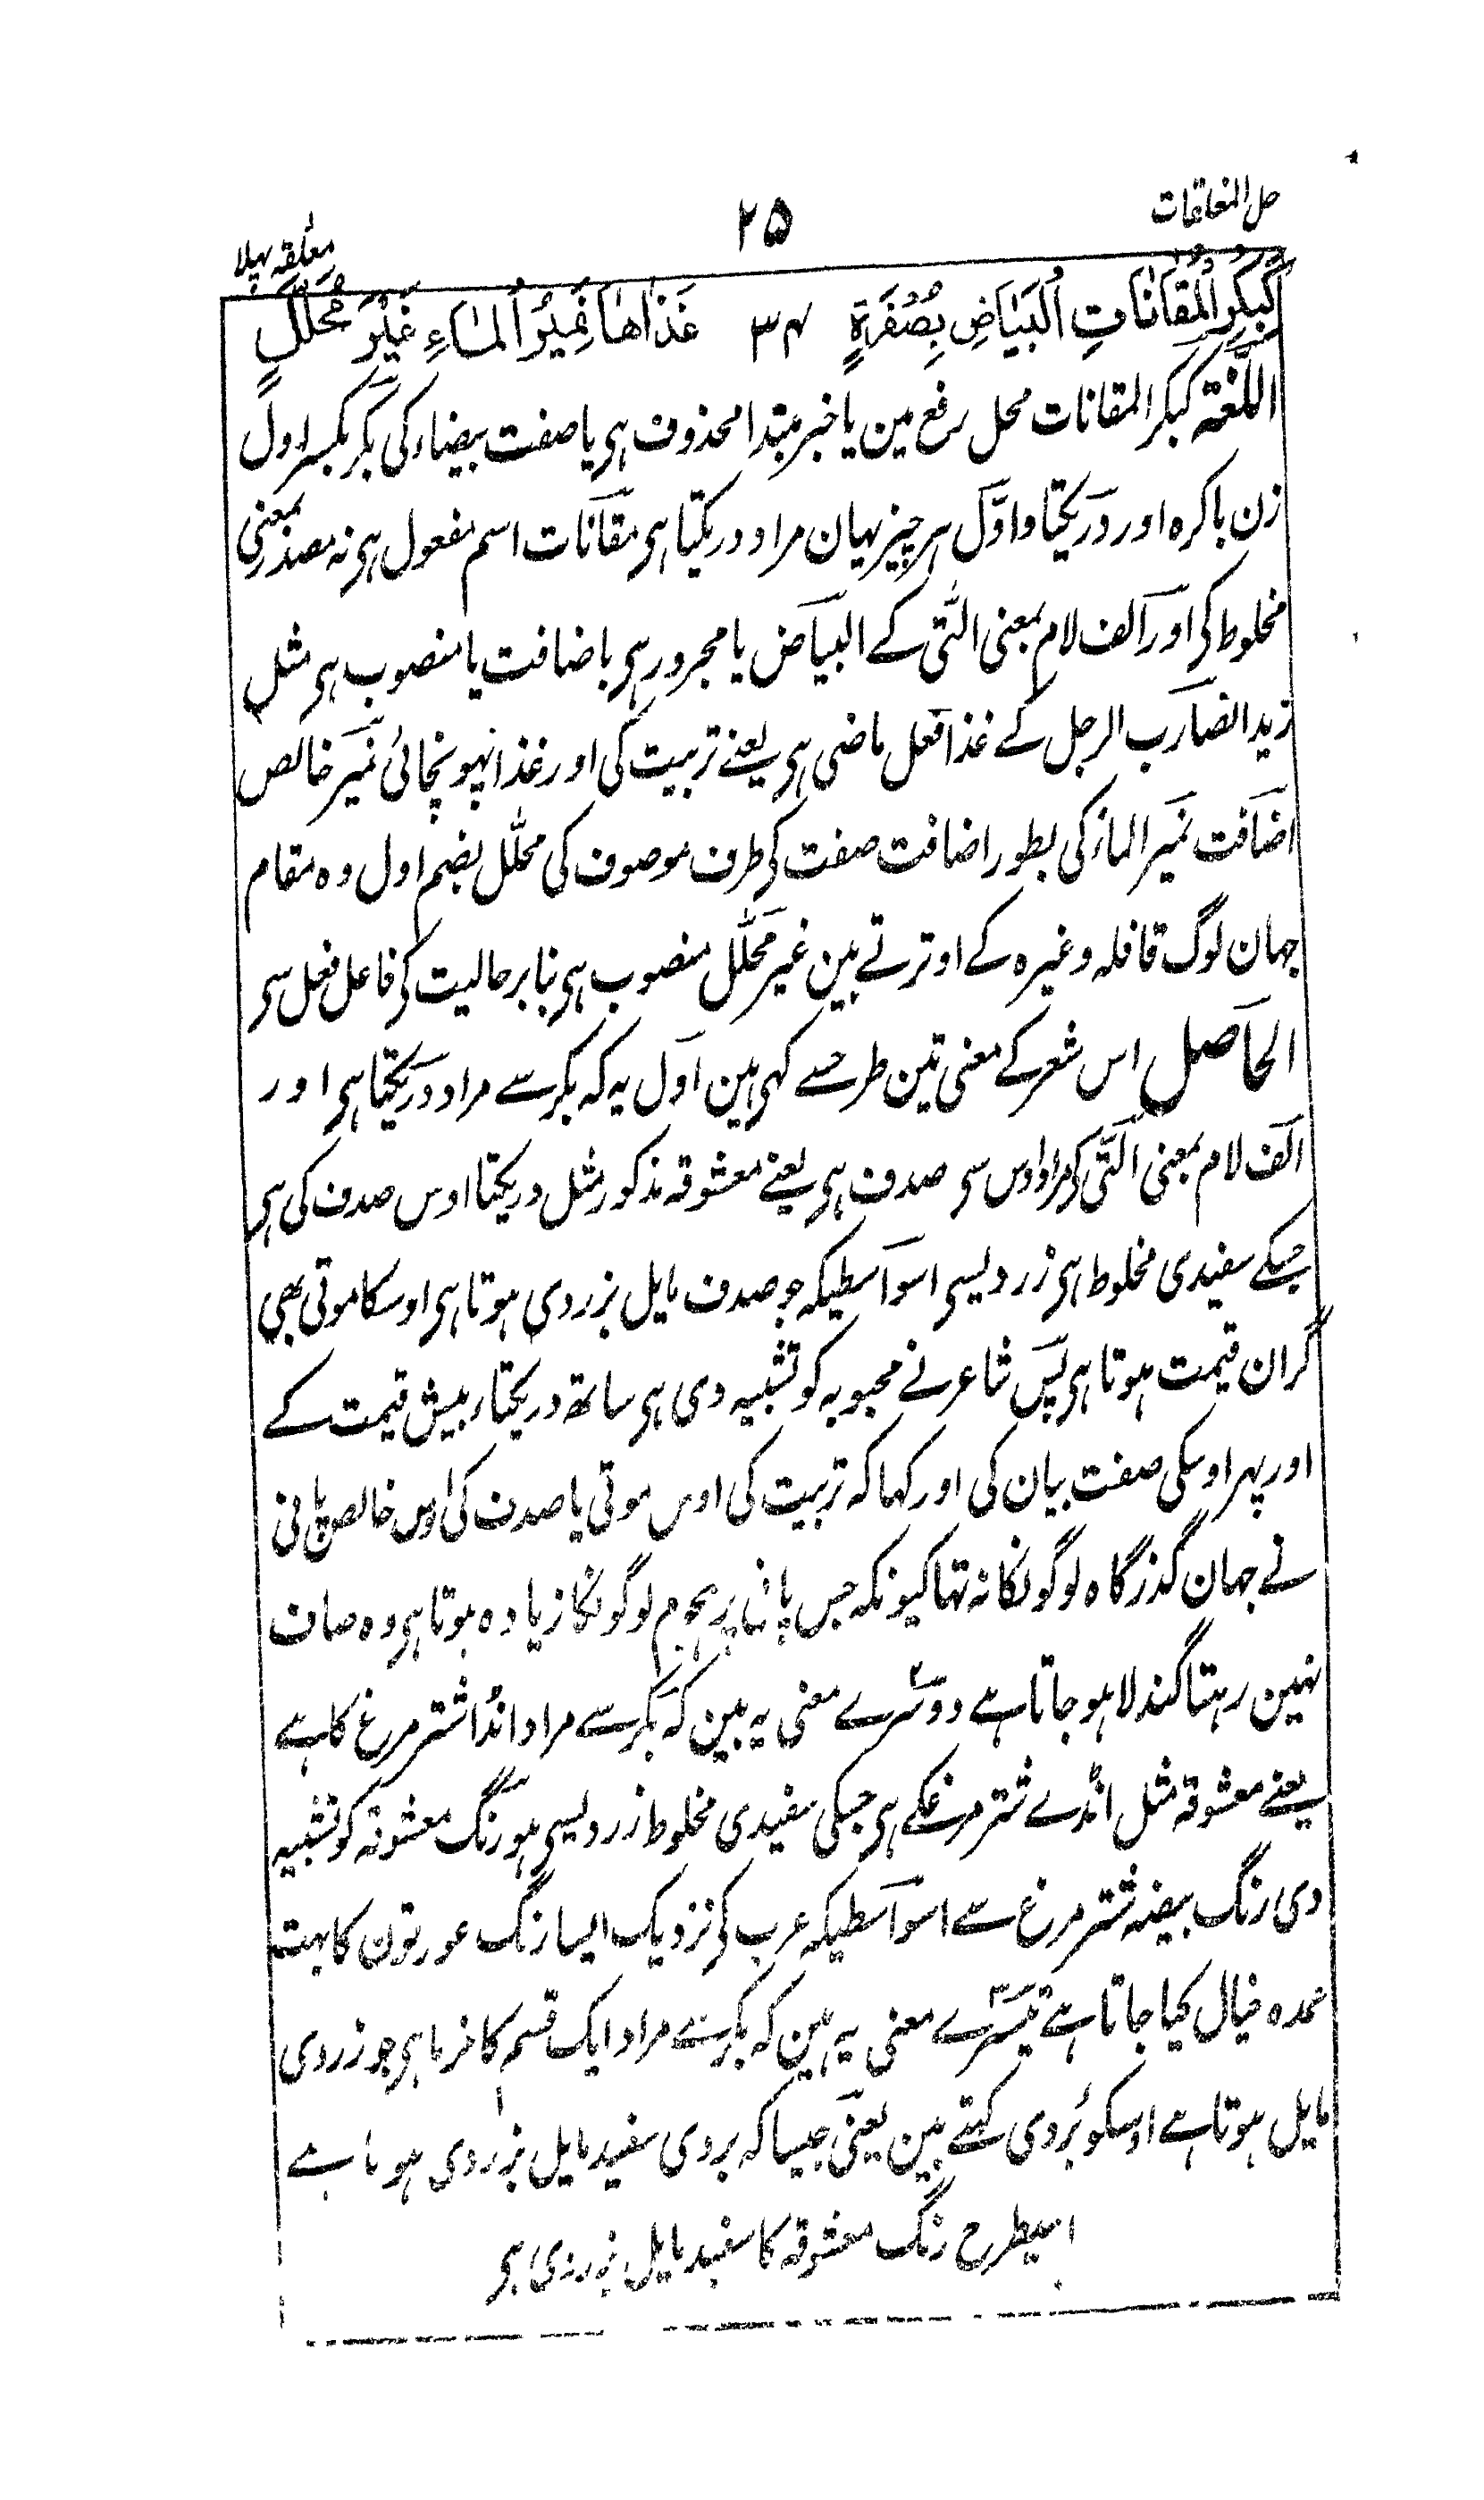 حل المعلقات
۲۵
معلقہ پہلا
كَبِكْرِ الْمُقَانَاتِ الْبَيَاضِ بِصُفْرَةٍ ۳۴ غَذَاهَا نَمِيْرُ الْمَاءِ غَيْرَ مُحَلَّلِ
اللغة کبکر المقانات محل رفع مین یا خبر مبتدا محذوف ہی یا صفت بیضاء کی بکر بکسر اول
زن باکرہ اور در یکتا و اوّل ہر چیز یہان مراد در یکتا ہی مقانات اسم مفعول ہی نہ مصدر بمعنی
مخلوط کی اور الف لام بمعنی الّتی کے البیاض یا مجرور ہی باضافت یا منصوب ہی مثل
زید الضارب الرجل کے غذا فعل ماضی ہی یعنے تربیت کی اور غذا پہونچائی نمیر خالص
اضافت نمیر الماء کی بطور اضافت صفت کی طرف موصوف کی محلّل بضم اول وہ مقام
جہان لوگ قافلہ وغیرہ کے اوترتے ہین غیر محلّل منصوب ہی بنا بر حالیت کی فاعل فعل سی
الحاصل اس شعر کے معنی تین طرحسے کہی ہین اول یہ کہ بکر سے مراد در یکتا ہی اور
الف لام بمعنی الّتی کی مراد اوس سی صدف ہی یعنے معشوقہ مذکور مثل در یکتا اوس صدف کی ہی
جسکے سفیدی مخلوط ہی زردیسی اسواسطیکہ جو صدف مایل بزردی ہوتا ہی اوسکا موتی بھی
گران قیمت ہوتا ہی پس شاعر نے محبوبہ کو تشبیہ دی ہی ساتھ در یکتاء بیش قیمت کے
اور پھر اوسکی صفت بیان کی اور کہا کہ تربیت کی اوس موتی یا صدف کی اوس خالص پانی
نے جہان گذرگاہ لوگونکا نہ تہا کیونکہ جس پانی پر ہجوم لوگونکا زیادہ ہوتا ہی وہ صاف
نہین رہتا گندلا ہو جاتا ہے دوسرے معنی یہ ہین کہ بکر سے مراد انڈا شتر مرغ کا ہے
یعنے معشوقہ مثل انڈے شتر مرغکے ہی جسکی سفیدی مخلوط زردیسی ہو رنگ معشوقہ کو تشبیہ
دی رنگ بیضہ شتر مرغ سے اسواسطیکہ عرب کی نزدیک ایسا رنگ عورتون کا بہت
عمدہ خیال کیا جاتا ہے تیسرے معنی یہ ہین کہ بکر سے مراد ایک قسم کا خرما ہی جو زردی
مایل ہوتا ہے اوسکو بُردی کہتے ہین یعنی جیسا کہ بردی سفید مایل بزردی ہوتا ہے
اسیطرح رنگ معشوقہ کا سفید مایل بزردی ہی